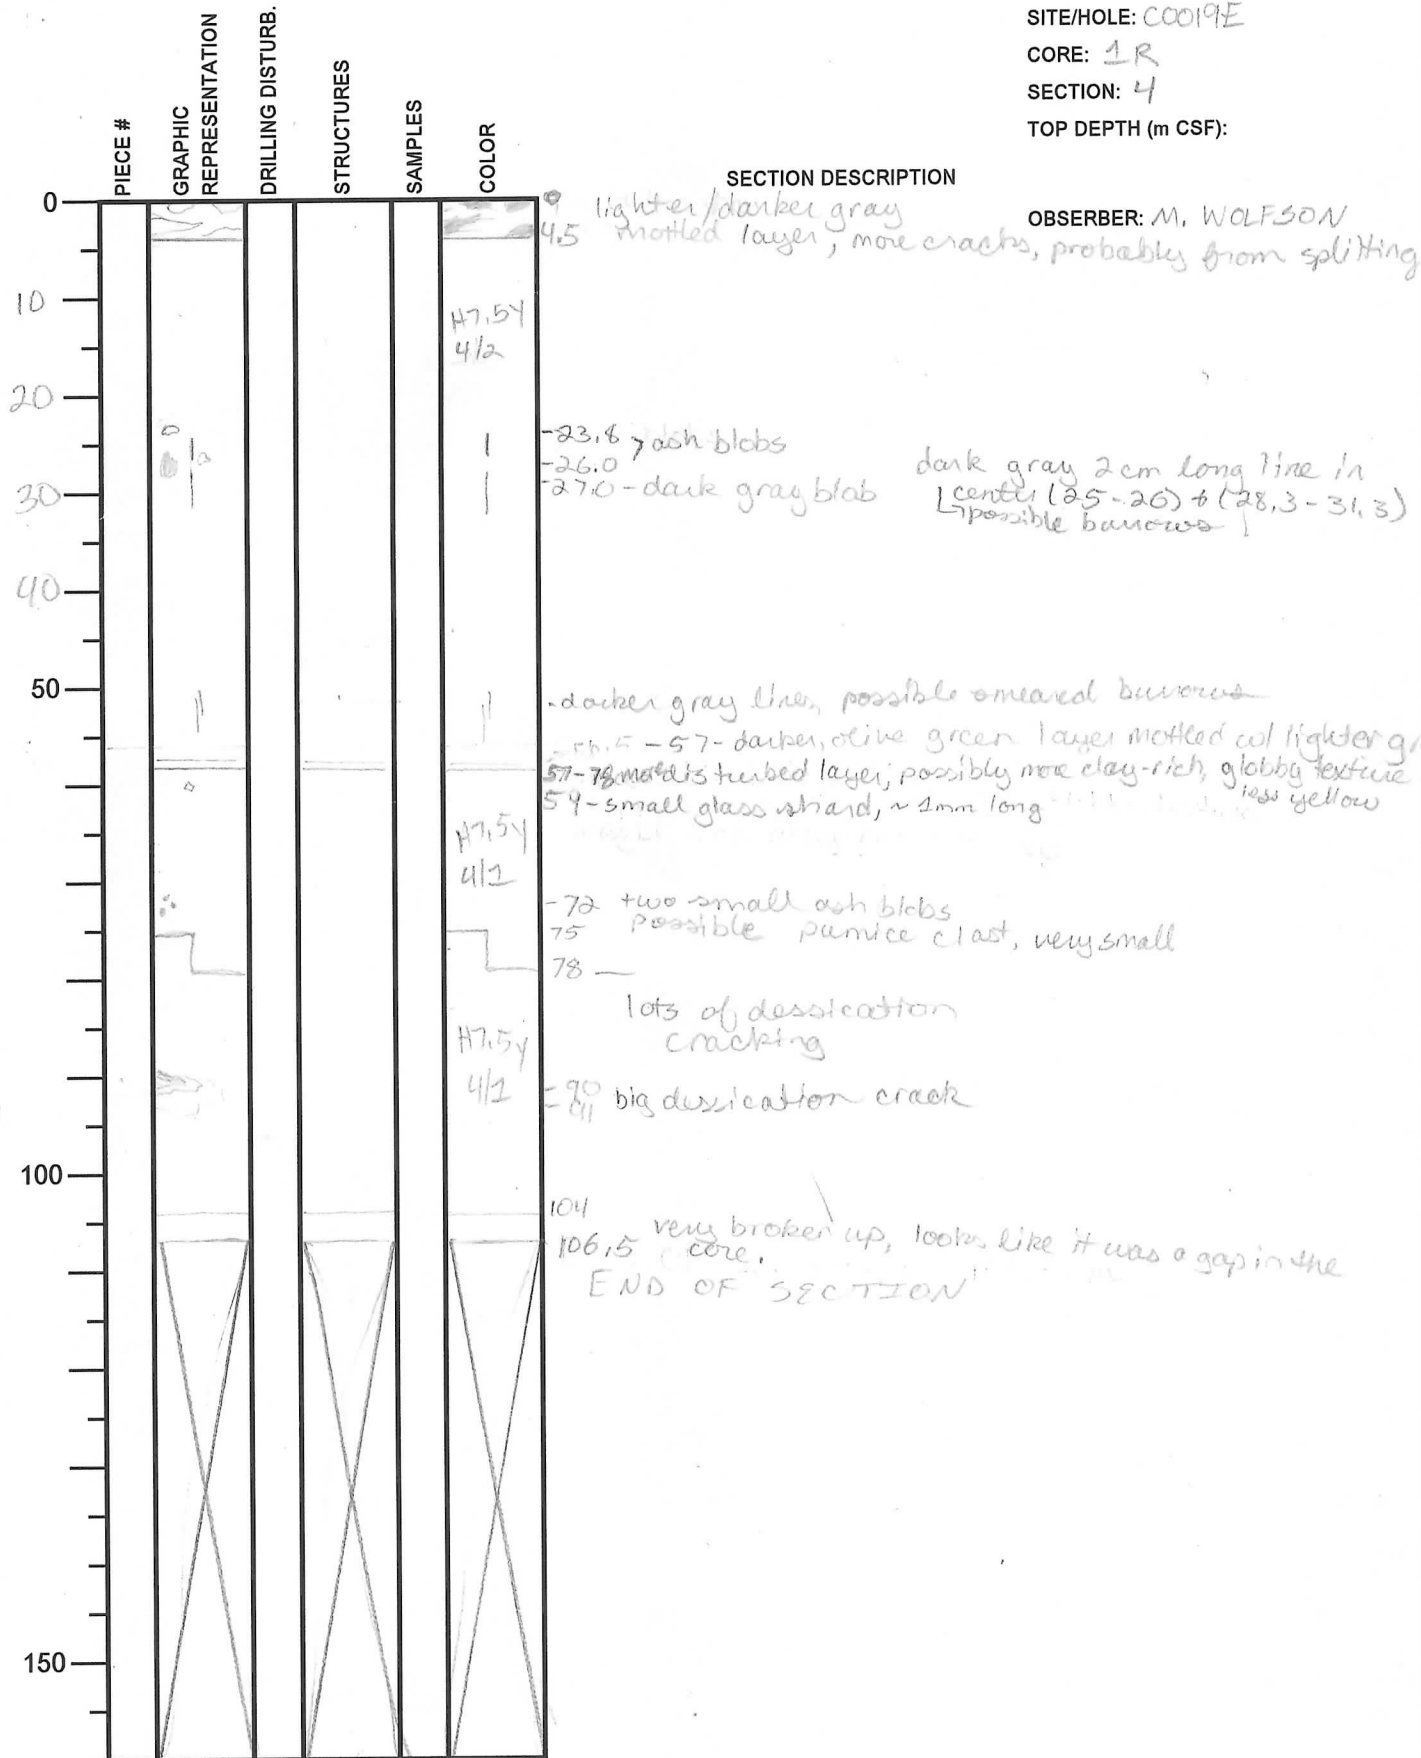 SITE/HOLE: C0019E
CORE: 1R
SECTION: 4
TOP DEPTH (m CSF):
PIECE #
GRAPHIC
REPRESENTATION
DRILLING DISTURB.
STRUCTURES
SAMPLES
COLOR
SECTION DESCRIPTION
OBSERBER: M. WOLFSON
0
10
20
30
40
50
100
150
0 lighter/darker gray
4.5 mottled layer, more cracks, probably from splitting
H7.5Y
4/2
-23.8 > ash blobs
-26.0
-27.0 - dark gray blob
dark gray 2cm long line in
center (25-26) + (28.3-31.3)
possible burrows
-darker gray lines, possible smeared burrows
56.5 - 57 - darker, olive green layer mottled w/ lighter
57-78 disturbed layer, possibly more clay-rich, globby texture
less yellow
59 - small glass shard, ~ 1mm long
H7.5Y
4/1
-72 two small ash blobs
75 possible pumice clast, very small
78
lots of dessication
cracking
H7.5Y
4/1
-90
-91 big dessication crack
104
106.5 very broken up, looks like it was a gap in the
core.
END OF SECTION